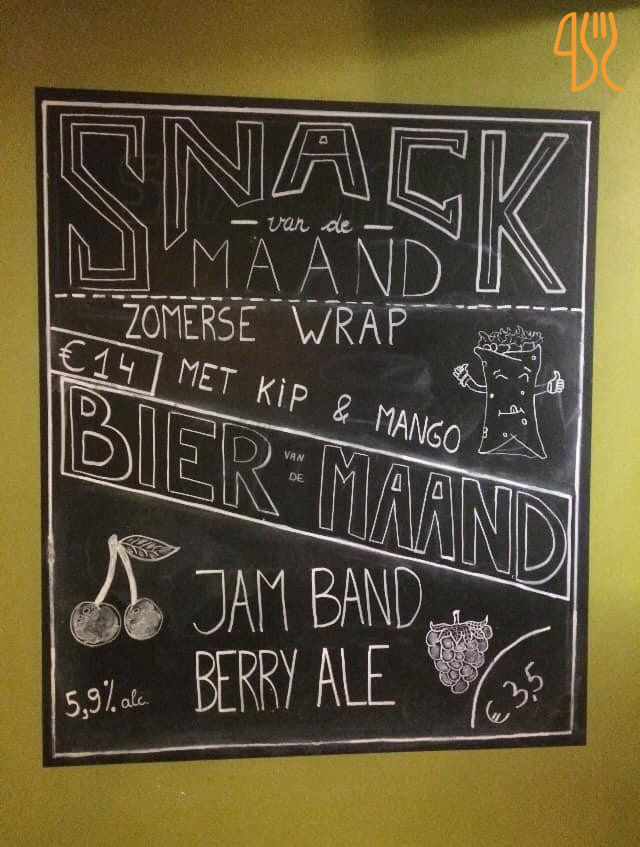 SNACK
van de
MAAND
ZOMERSE WRAP
€14
MET KiP & MANGO
BIER VAN DE MAAND
JAM BAND
BERRY ALE
5,9% alc.
€3,5